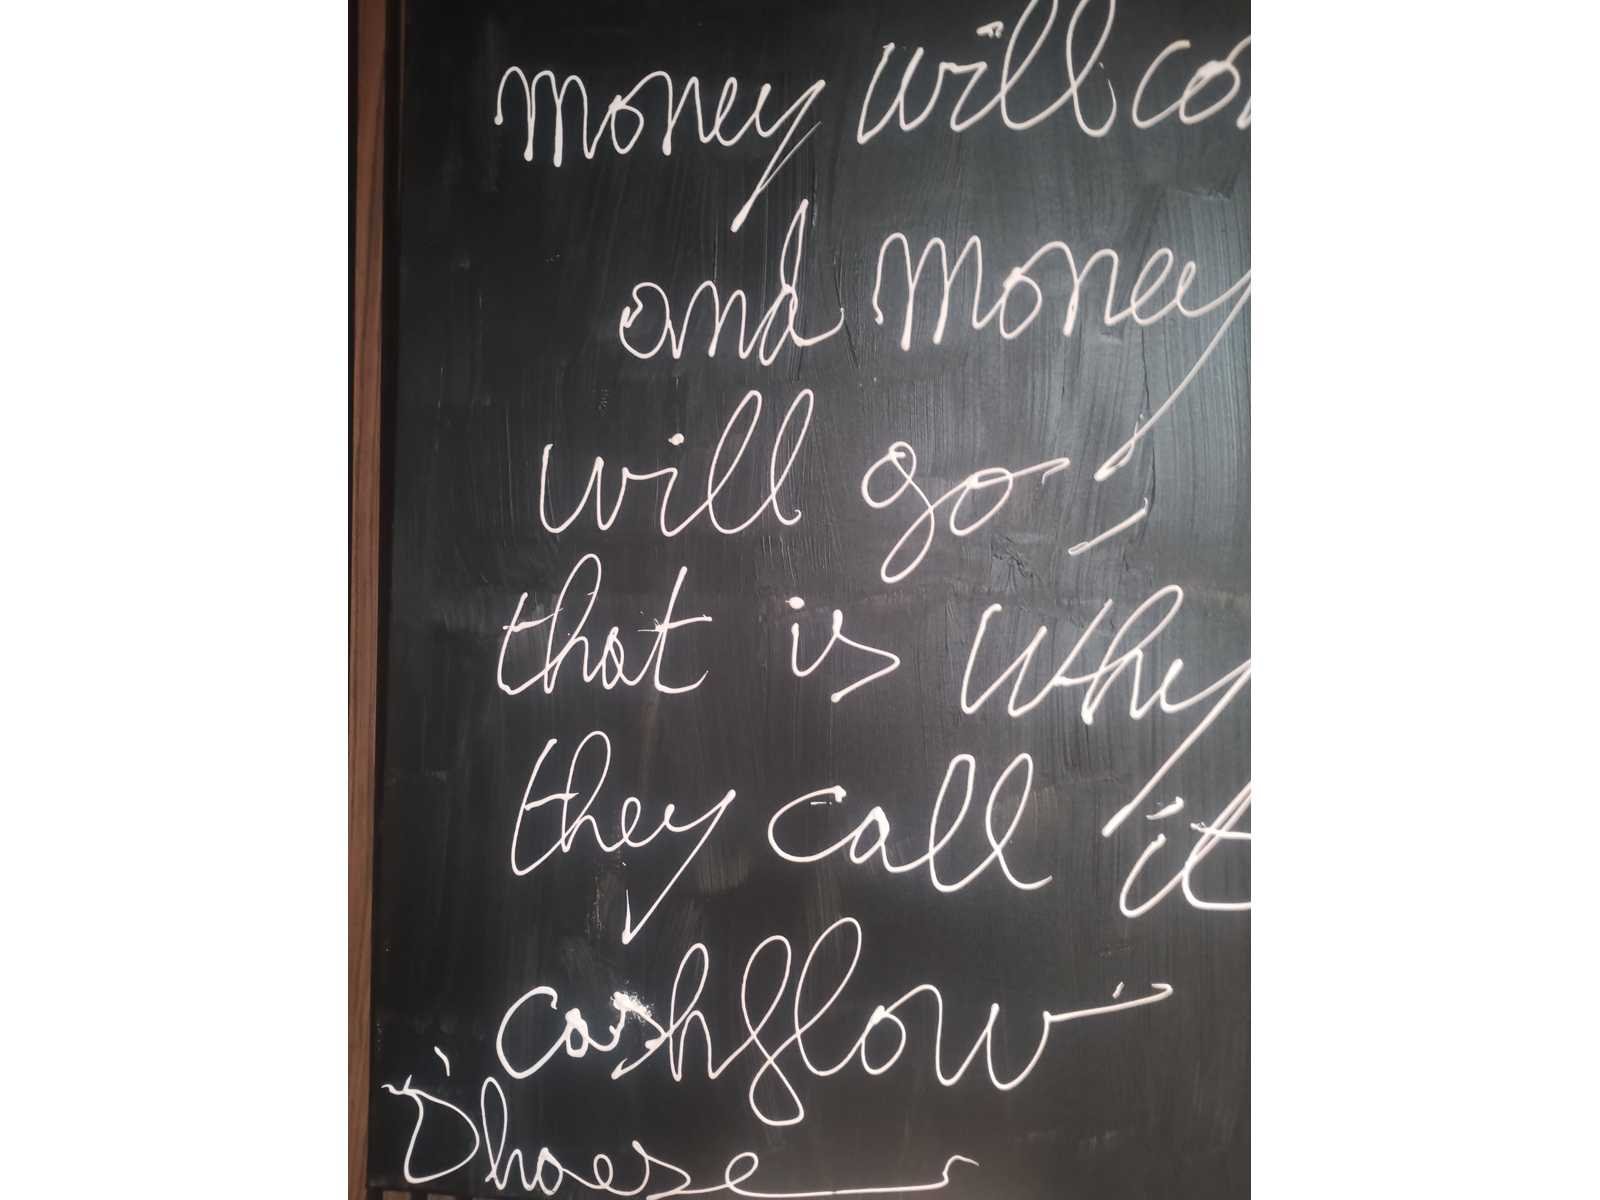 money will co
and money
will go
that is why
they call it
cashflow